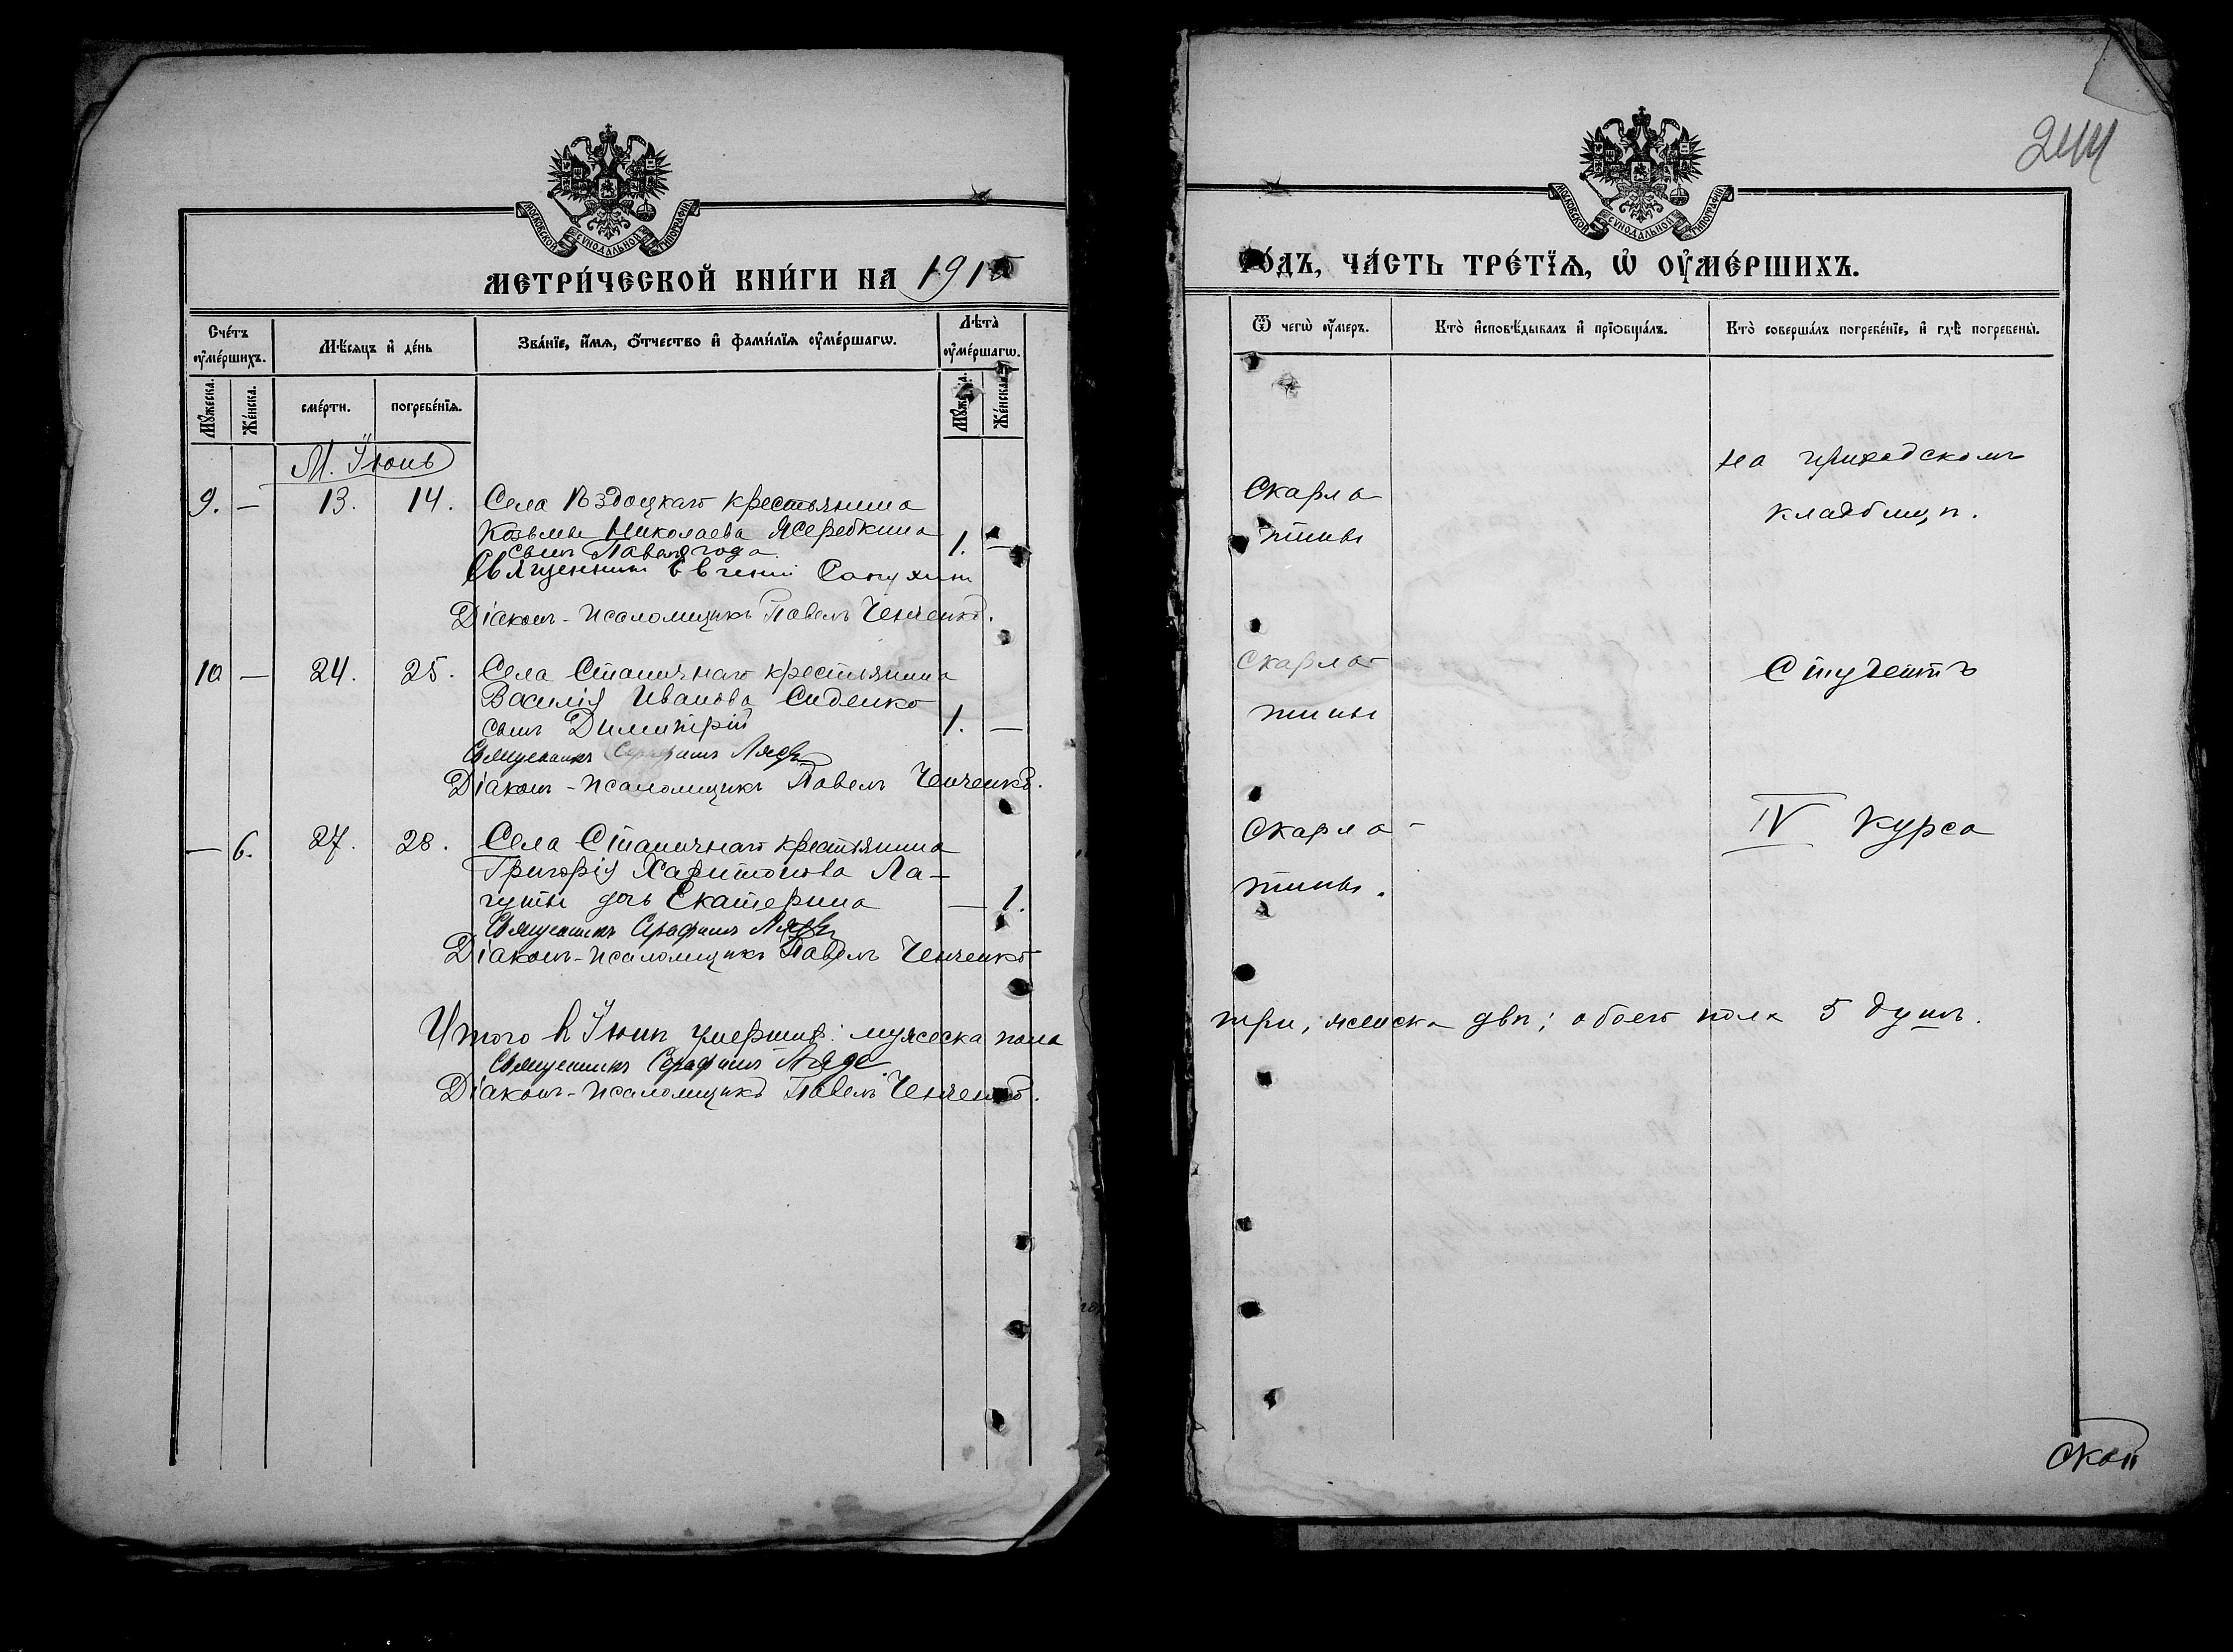 МОСКОВСКОЙ СѴНОДАЛЬНОЙ ТИПОГРАФІИ
МЕТРИ́ЧЕСКОЙ КНИ́ГИ НА 191
Сче́тъ ᲂу҆ме́ршихъ.
Мѣ́сяцъ и҆ де́нь
Зва́нїе, и҆́мѧ, ѻ҆́тчество и҆ фами́лїѧ ᲂу҆ме́ршагѡ.
Лѣта̀ ᲂу҆ме́ршагѡ.
Мꙋ́жеска.
Же́нска.
сме́рти.
погребе́нїѧ.
Же́нска.
М. Іюнь
9. — 13. 14. Села крестьянина
Козьмы Николаева Жеребкина
сынъ Павелъ года 1. —
Священникъ Евгеній
Діаконъ-псаломщикъ Павелъ Ченченко.
10 — 24. 25. Села Станичнаго крестьянина
Василія Иванова Сиденко
сынъ Димитрій 1. —
Священникъ Серафимъ
Діаконъ-псаломщикъ Павелъ Ченченко.
— 6. 27. 28. Села Станичнаго крестьянина
Григорія Харитонова Ла-
гуты дочь Екатерина — 1.
Священникъ Серафимъ
Діаконъ-псаломщикъ Павелъ Ченченко
Итого въ Іюнѣ умершихъ: мужеска пола
Священникъ Серафимъ
Діаконъ-псаломщикъ Павелъ Ченченко.
244
МОСКОВСКОЙ СѴНОДАЛЬНОЙ ТИПОГРАФІИ
ГО́ДЪ, ЧА́СТЬ ТРЕ́ТЇѦ, Ѡ҆ ОУ҆МЕ́РШИХЪ.
Ѿ чегѡ̀ ᲂу҆́меръ.
Кто̀ и҆сповѣ́дывалъ и҆ прїѡбща́лъ.
Кто̀ соверша́лъ погребе́нїе, и҆ гдѣ̀ погребены̀.
на приходскомъ
Скарла-
кладбищѣ.
тины
Скарла-
Студентъ
тины
IV курса
Скарла-
тины.
три, женска двѣ; обоего пола 5 душъ.